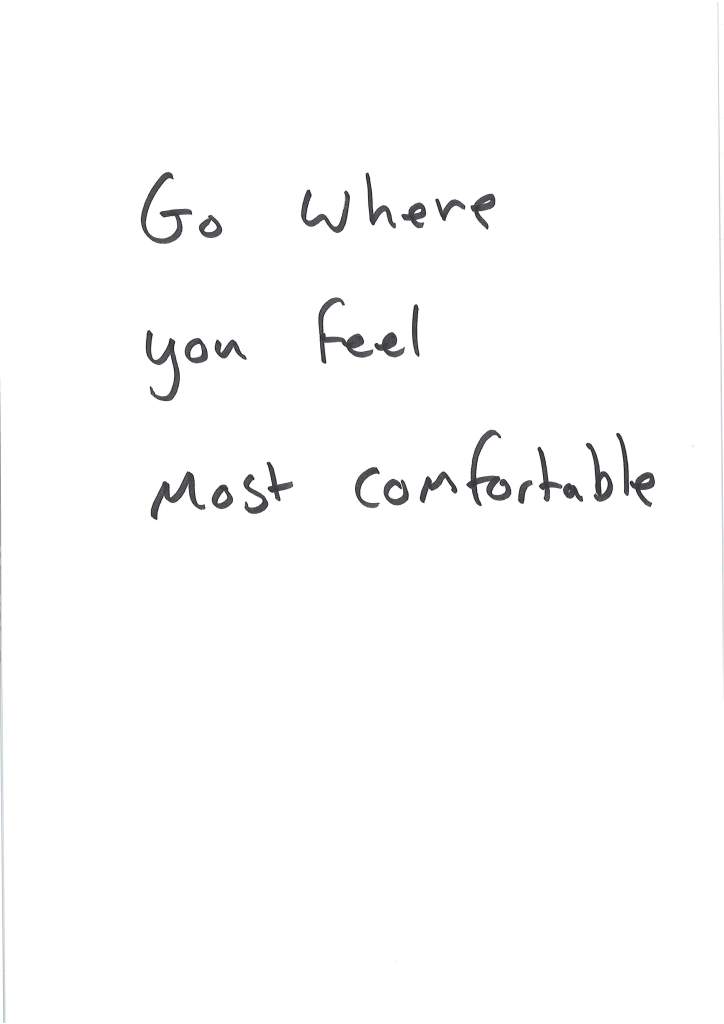 Go where
you feel
most comfortable